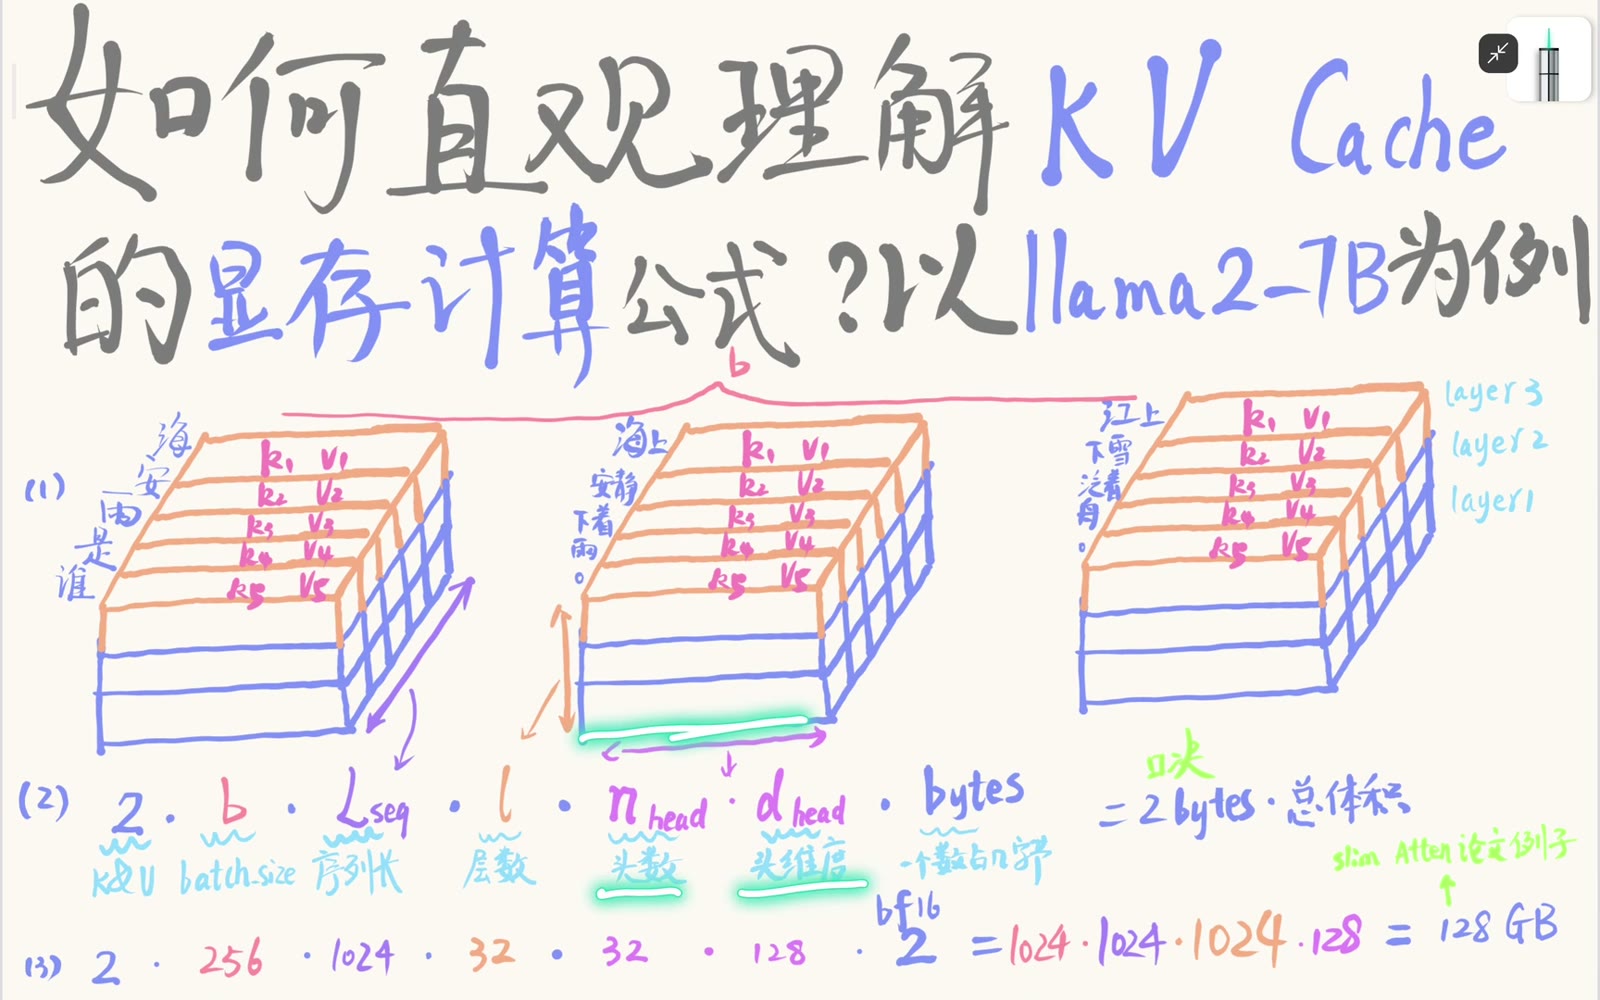 如何直观理解 KV Cache
的显存计算公式?以llama2-7B为例
b
(1)
海
安
雨
是
谁
k1 V1
k2 V2
k3 V3
k4 V4
k5 V5
海上
安静
下着
雨
。
k1 V1
k2 V2
k3 V3
k4 V4
k5 V5
江上
下雪
泛着
舟
。
k1 V1
k2 V2
k3 V3
k4 V4
k5 V5
layer3
layer2
layer1
口决
(2) 2 · b · Lseq · l · nhead · dhead · bytes = 2bytes · 总体积
K&V batch_size 序列长 层数 头数 头维度 一个数占n字节
slim Atten论文例子
bf16
(3) 2 · 256 · 1024 · 32 · 32 · 128 · 2 = 1024 · 1024 · 1024 · 128 = 128 GB